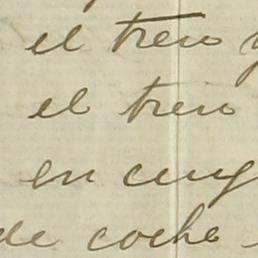 el tren y
el tren
en cuy
de coche